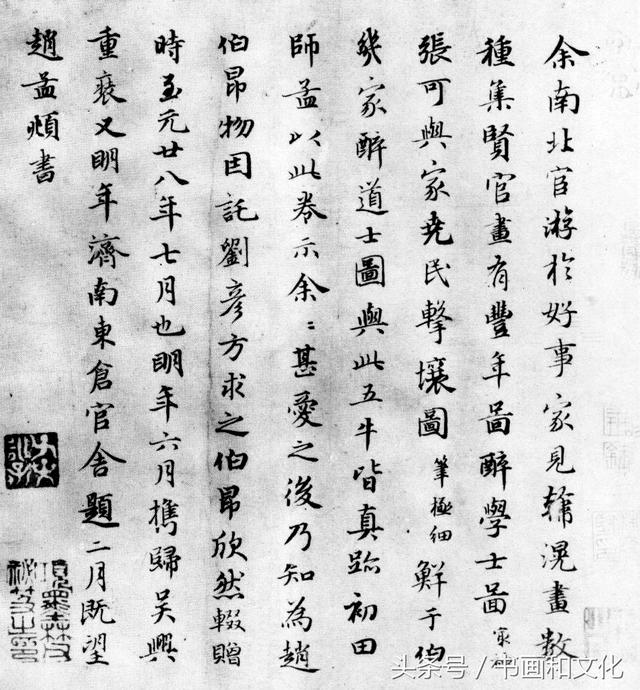 余南北官游於好事家見韓滉畫數
種集賢官畫有豐年圖醉學士圖
張可與家堯民擊壤圖筆極細鮮于伯
幾家醉道士圖與此五牛皆真跡初田
師孟以此卷示余:甚愛之後乃知為趙
伯昂物因託劉彥方求之伯昂欣然輟贈
時至元廿八年七月也明年六月携歸吳興
重裝又明年濟南東倉官舍題二月既望
趙孟頫書
項墨林父
祕笈之印
头条号/书画和文化